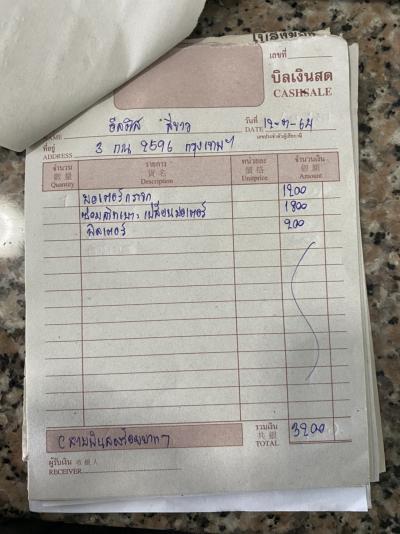 เลขที่
บิลเงินสด
CASHSALE
NAME สีขาว วันที่
DATE 12-7-64
เลขประจำตัวผู้เสียภาษี
ที่อยู่
ADDRESS 3 กน 2596 กรุงเทพฯ
จำนวน รายการ หน่วยละ จำนวนเงิน
數量 貨名 價格 銀額
Quantity Description Unitprice Amount
มอเตอร์กระจก 1200
เปลี่ยนมอเตอร์ 1800
ฟิลเตอร์ 200
(สามพันสองร้อยบาท) รวมเงิน 3200
共銀
TOTAL
ผู้รับเงิน 收銀人
RECEIVER